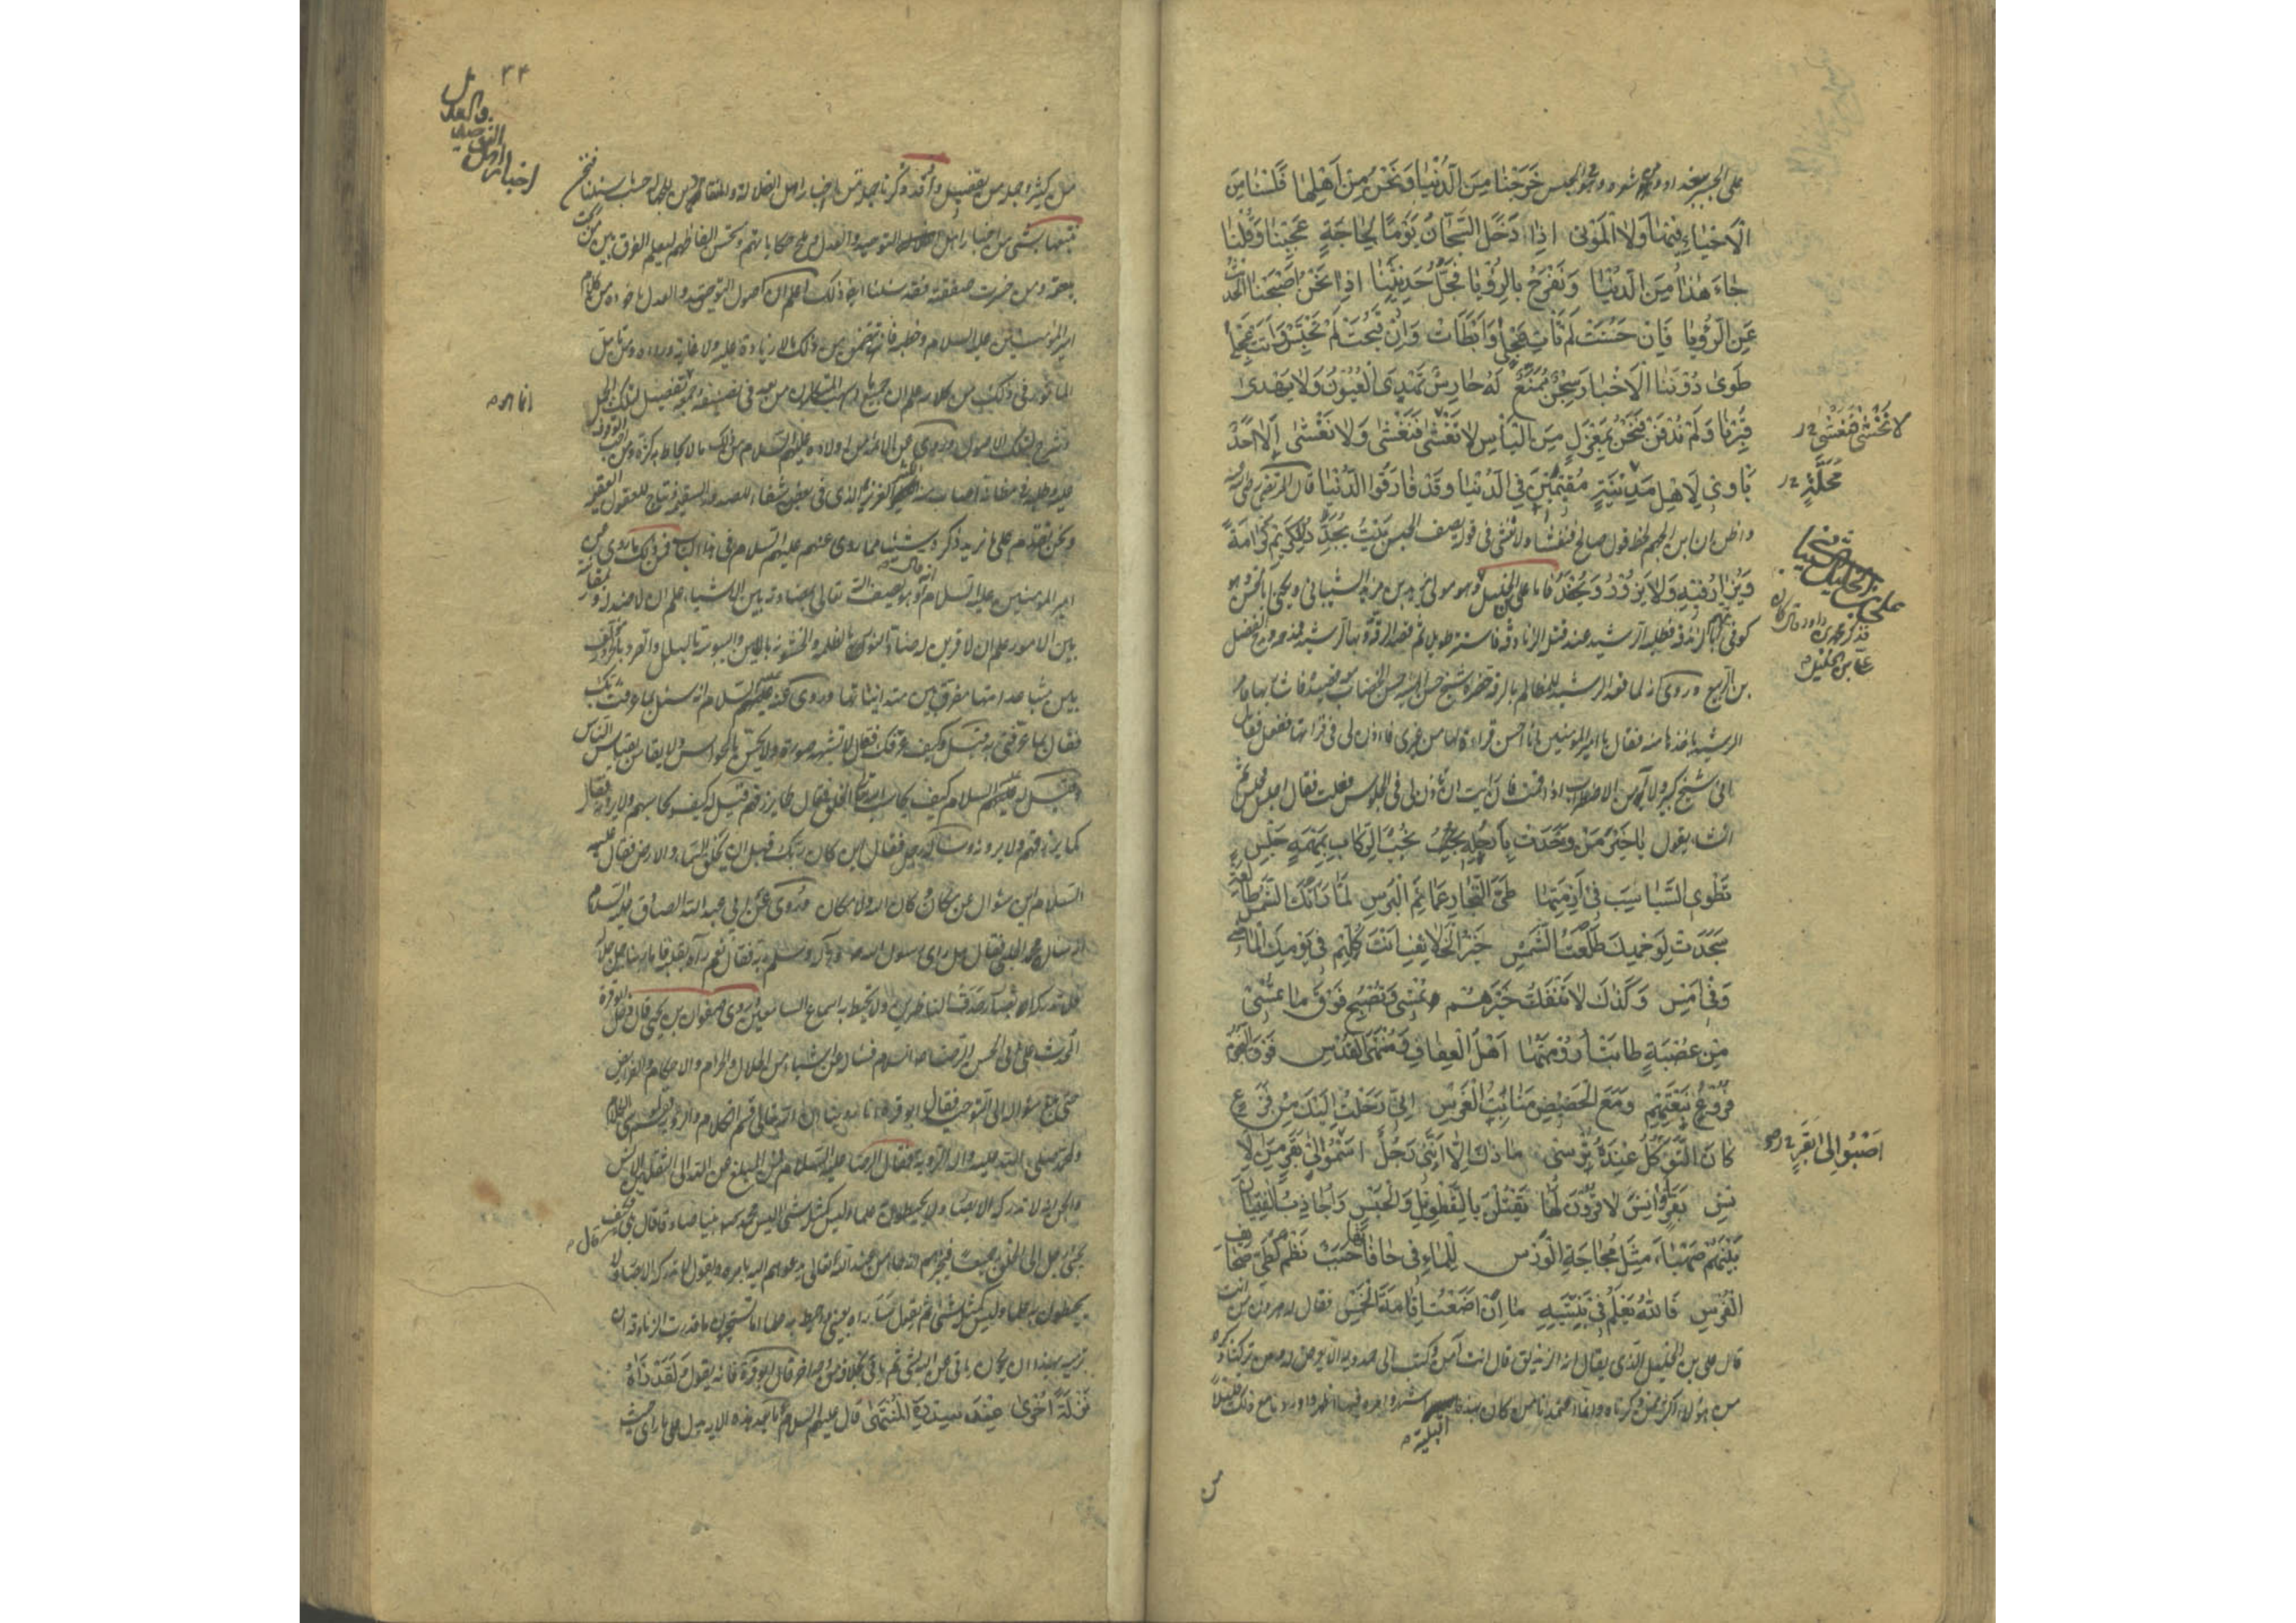 خَرَجْنَا مِنَ الدُّنْيَا وَنَحْنُ مِنْ اَهْلِهَا فَلَسْنَا مِنَ
الْاَحْيَاءِ فِيهَا وَلَا الْمَوْتى اِذَا دَخَلَ السَّجَّانُ يَوْمًا لِحَاجَةٍ عَجِبْنَا وَقُلْنَا
جَاءَ هٰذَا مِنَ الدُّنْيَا وَنَفْرَحُ بِالرُّؤْيَا فَجُلُّ حَدِيثِنَا اِذَا نَحْنُ اَصْبَحْنَا الْحَدِيثُ
عَنِ الرُّؤْيَا فَاِنْ حَسُنَتْ لَمْ تَأْتِ عَجْلَى وَاَبْطَاَتْ وَاِنْ قَبُحَتْ لَمْ تَحْتَبِسْ وَاَتَتْ عَجْلَى
طَوى دُونَنَا الْاَخْبَارَ سِجْنٌ مُمَنَّعٌ لَهُ حَارِسٌ تَهْدَى الْعُيُونُ وَلَا يَهْدى
قُبِرْنَا وَلَمْ نُدْفَنْ فَنَحْنُ بِمَعْزِلٍ مِنَ النَّاسِ لَا نَخْشى فَنَغْشى وَلَا نَغْشى اَلَا اَحَدٌ
يَأْوِي لِاَهْلِ مَدِينَةٍ مُقِيمِينَ فِي الدُّنْيَا وَقَدْ فَارَقُوا الدُّنْيَا قال المرتضى
واظن ان ابن الجهم لحظ قول صالح في قوله يصف الحبس بَيْتٌ يُجَدِّدُ لِلْكَرِيمِ كَرَامَةً
وَيُزَارُ فِيهِ وَلَا يَزُورُ وَيُحْفَدُ فاما علي بن الخليل وهو مولى يزيد بن مزيد الشيباني ويكنى ابا الحسن وهو
كوفي متهم بالزندقة فطلبه الرشيد عند قتل الزنادقة فاستتر طويلا ثم قصد الرقة وبها الرشيد فمدحه ومدح الفضل
بن الربيع وروي انه لما قعد الرشيد للمظالم بالرقة حضره شيخ حسن الهيئة حسن الخضاب معه قصيدة فاشار بها فامر
الرشيد باخذها منه فقال يا امير المؤمنين انا احسن قراءة لها من غيري فاذن لي في قراءتها ففعل فقال
اني شيخ كبير ولا آمن الاضطراب اذا قمت فان رأيت ان تأذن لي في الجلوس فعلت فقال اجلس فجلس ثم
انشأ يقول يَا خَيْرَ مَنْ وَخَدَتْ بِاَرْحُلِهِ نُجُبُ الرِّكَابِ بِمَهْمَهٍ جَلْسِ
تَطْوِي السَّبَاسِبَ فِي اَزِمَّتِهَا طَيَّ التِّجَارِ عَمَائِمَ الْبِرْسِ لَمَّا رَاَتْكَ الشَّمْسُ طَالِعَةً
سَجَدَتْ لِوَجْهِكَ طَلْعَةُ الشَّمْسِ خَيْرُ الْخَلَائِفِ اَنْتَ كُلِّهِمُ فِي يَوْمِكَ الْمَاضِي
وَفِي اَمْسِ وَكَذٰلِكَ لَا تَنْفَكُّ خَيْرَهُمُ تُمْسِي وَتُصْبِحُ فَوْقَ مَا تُمْسِي
مِنْ عُصْبَةٍ طَابَتْ اَرُومَتُهَا اَهْلِ الْعَفَافِ وَمُنْتَهَى الْقُدْسِ فَوْقَ النُّجُومِ
فُرُوعُ نَبْعَتِهِمْ وَمَعَ الْحَضِيضِ مَنَابِتُ الْغَرْسِ اِنِّي رَحَلْتُ اِلَيْكَ مِنْ فَزَعٍ
كَانَ التَّوَكُّلُ عِنْدَهُ تُرْسِي مَا ذَاكَ اِلَّا اَنَّنِي رَجُلٌ اَصْبُو اِلى بَقَرٍ مِنَ الْاِ
نْسِ بَقَرٍ اَوَانِسَ لَا قُرُونَ لَهَا يَقْتُلْنَ بِالتَّطْوِيلِ وَالْحَبْسِ وَاُجَاذِبُ الْفِتْيَانَ
بَيْنَهُمُ صَهْبَاءَ مِثْلَ مُجَاجَةِ الْوَرْسِ لِلْمَاءِ فِي حَافَاتِهَا حَبَبٌ نَظْمٌ كَطَيِّ صَحَائِفِ
الْفُرْسِ فَاللهُ يَعْلَمُ فِي بَنِيَّتِهِ مَا اِنْ اَضَعْتُ اِقَامَةَ الْخَمْسِ فقال له هرون من انت
قال علي بن الخليل الذي يقال انه الزنديق قال انت آمن وكتب الى حمدويه الا يعرض له
لَا نَخْشى فَنَغْشى
مَحَلَّةٍ
علي بن الخليل الشيباني
اَصْبُو اِلى بَقَرٍ
البلية
من
٣٤
اخبار اهل التوحيد والعدل
وقد ذكرنا جملة من اخبار اهل الضلالة
نتبعها بشيء من اخبار اهل التوحيد والعدل وملح حكاياتهم ومستحسن الفاظهم ليعلم الفرق بين من ربحت
بيعته ومن خسرت صفقته فقد سئلنا ايضا ذلك اعلم ان اصول التوحيد والعدل مأخوذة من كلام
امير المؤمنين عليه السلام وخطبه فانها تتضمن من ذلك ما لا زيادة عليه ولا غاية وراءه ومن تأمل
المأثور في ذلك من كلامه علم ان جميع ما اسهب المتكلمون من بعد في تصنيفه وجمعه تفصيل لتلك الجمل
وشرح لتلك الاصول وروي عن الائمة من اولاده عليهم السلام من ذلك ما لا يحاط به كثرة ومن احب الوقوف
عليه وطلبه في مظانه اصاب منه الكثير الغزير الذي في بعضه شفاء للصدور السقيمة ونتاج للعقول العقيمة
ونحن نقدم على ما نريد ذكره شيئا مما روي عنهم عليهم السلام في هذا الباب فمن ذلك ما روي عن
امير المؤمنين عليه السلام انه قال وهو يصف الله تعالى بمضادته بين الاشياء علم ان لا ضد له وبمقارنته
بين الامور علم ان لا قرين له ضاد النور بالظلمة والخشونة باللين واليبوسة بالبلل والصرد بالحرور مؤلف
بين متباعداتها مفرق بين متدانياتها وروي عنه عليه السلام انه سئل بما عرفت ربك
فقال بما عرفني به قيل وكيف عرفك فقال لا تشبهه صورة ولا يحس بالحواس ولا يقاس بقياس الناس
وقيل له عليه السلام كيف يحاسب الله الخلق فقال كما يرزقهم قيل له كيف يحاسبهم ولا يرونه فقال
كما يرزقهم ولا يرونه وسأله رجل فقال اين كان ربك قبل ان يخلق السماء والارض فقال عليه
السلام اين سؤال عن مكان وكان الله ولا مكان وروي عن ابي عبد الله الصادق عليه السلام
انه سأله محمد الحلبي فقال هل رأى رسول الله صلى الله عليه وآله وسلم ربه فقال نعم رآه بقلبه فاما ربنا جل جلاله
فلا تدركه ابصار حدق الناظرين ولا يحيط به اسماع السامعين وروى صفوان بن يحيى قال دخل ابو قرة
المحدث على ابي الحسن الرضا عليه السلام فسأله عن اشياء من الحلال والحرام والاحكام والفرائض
حتى بلغ سؤاله الى التوحيد فقال ابو قرة انا روينا ان الله تعالى قسم الكلام والرؤية
ولمحمد صلى الله عليه وآله الرؤية فقال الرضا عليه السلام فمن المبلغ عن الله الى الثقلين الانس
والجن انه لا تدركه الابصار ولا يحيطون به علما وليس كمثله شيء اليس محمد نبيا صادقا قال بلى قال وكيف
يجيء رجل الى الخلق جميعا فيخبرهم انه جاء من عند الله تعالى يدعوهم اليه بامره ويقول لا تدركه الابصار ولا
يحيطون به علما وليس كمثله شيء ثم يقول سأراه بعيني واحيط به علما اما تستحيون ما قدرت الزنادقة ان
ترميه بهذا ان يكون يأتي عن الله بشيء ثم يأتي بخلافه من وجه آخر قال ابو قرة فانه يقول وَلَقَدْ رَآهُ
نَزْلَةً اُخْرى عِنْدَ سِدْرَةِ الْمُنْتَهى قال عليه السلام ما بعد هذه الآية يدل على ما رأى حيث